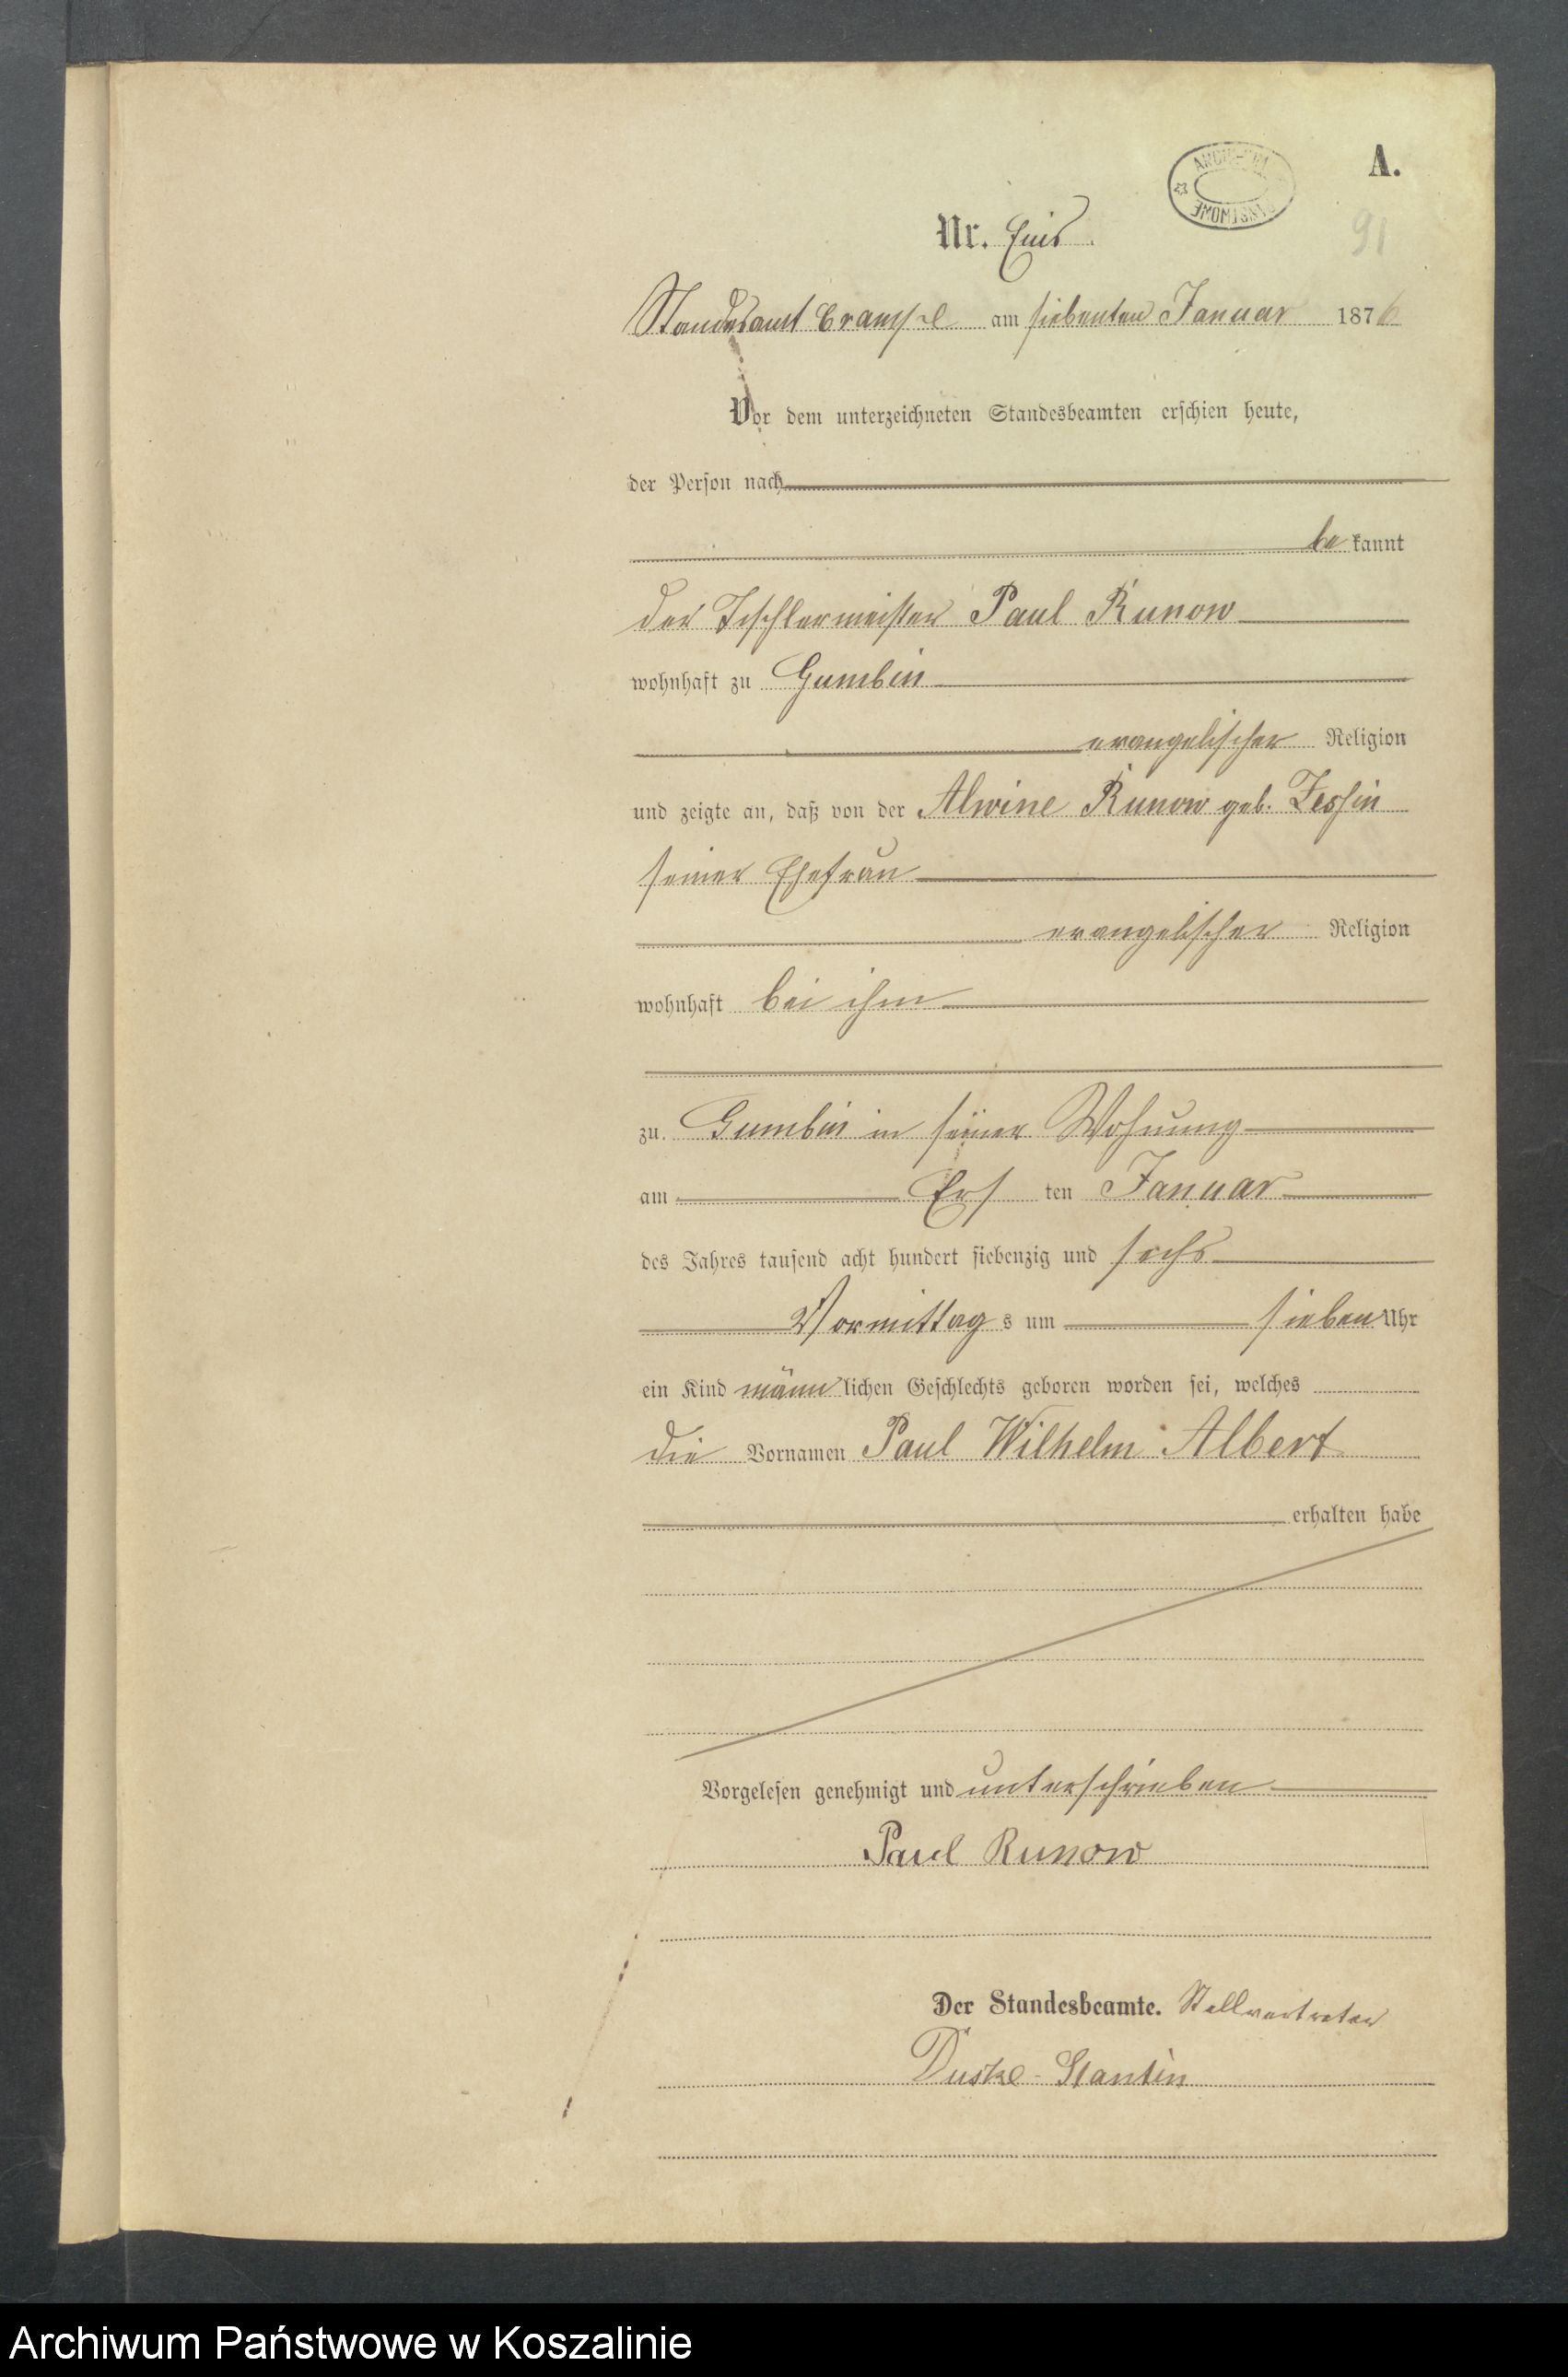 A.
ARCHIWUM PAŃSTWOWE
91
Nr. Eins.
Standesamt Crampe am siebenten Januar 1876
Vor dem unterzeichneten Standesbeamten erschien heute,
der Person nach
be kannt
der Tischlermeister Paul Runow
wohnhaft zu Gumbin
evangelischer Religion
und zeigte an, daß von der Alwine Runow geb. Zessin
seiner Ehefrau
evangelischer Religion
wohnhaft bei ihm
zu Gumbin in seiner Wohnung
am Ers ten Januar
des Jahres tausend acht hundert siebenzig und sechs
Vormittag s um sieben Uhr
ein Kind männ lichen Geschlechts geboren worden sei, welches
die Vornamen Paul Wilhelm Albert
erhalten habe
Vorgelesen genehmigt und unterschrieben
Paul Runow
Der Standesbeamte. Stellvertreter
Stantin
Archiwum Państwowe w Koszalinie